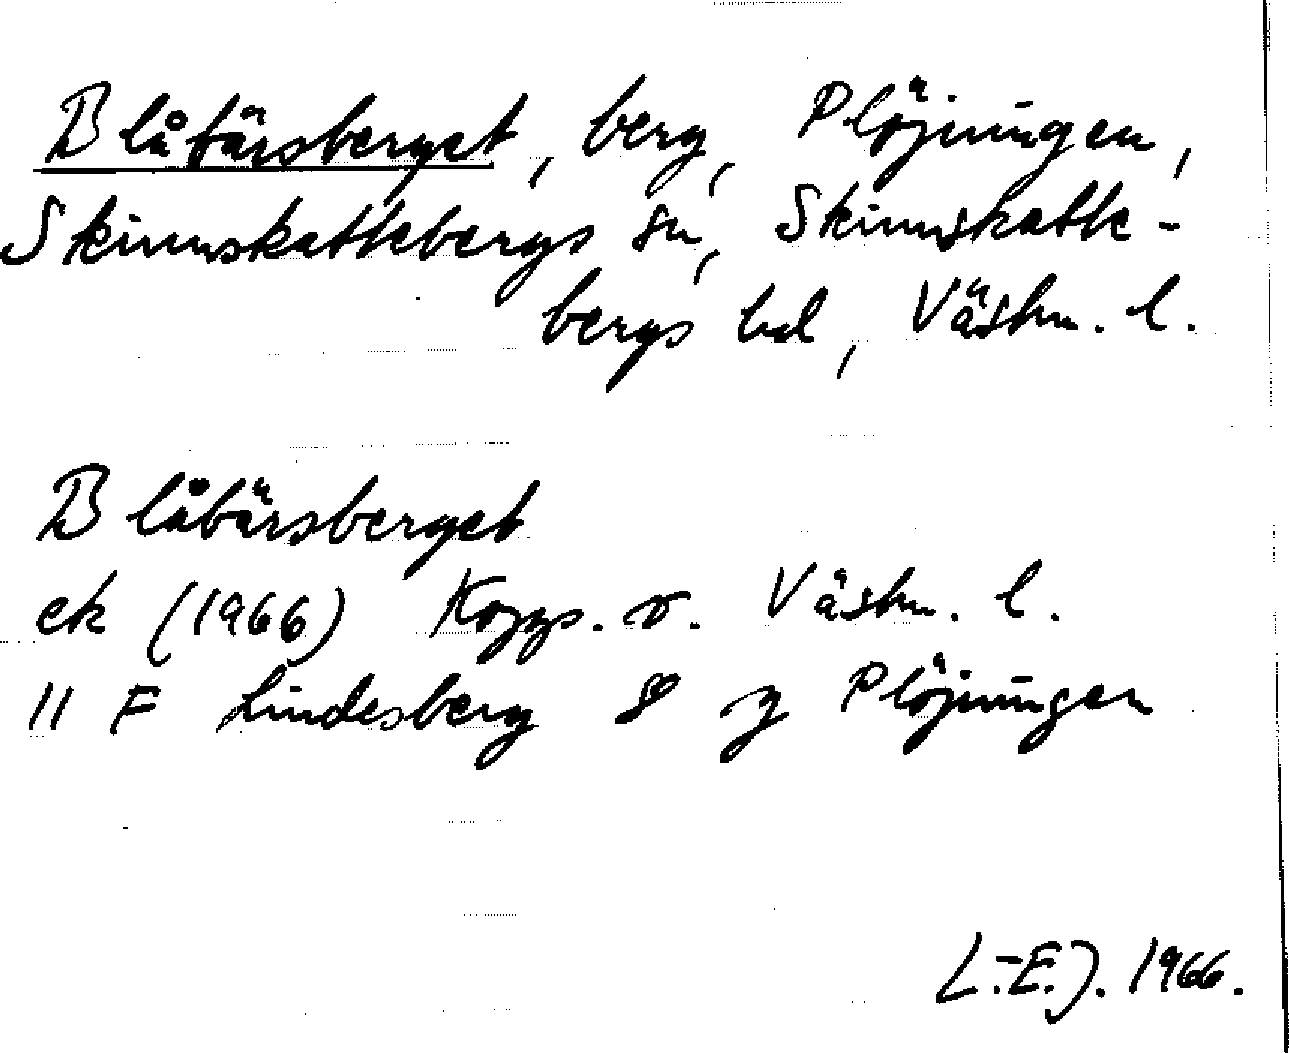 Blåbärsberget, berg, Plöjningen,
Skinnskattebergs sn, Skinnskatte-
bergs hd, Västm. l.
Blåbärsberget
ek (1966) Kopps. o. Västm. l.
11 F Lindesberg 8 g Plöjningen
L.-E.J. 1966.